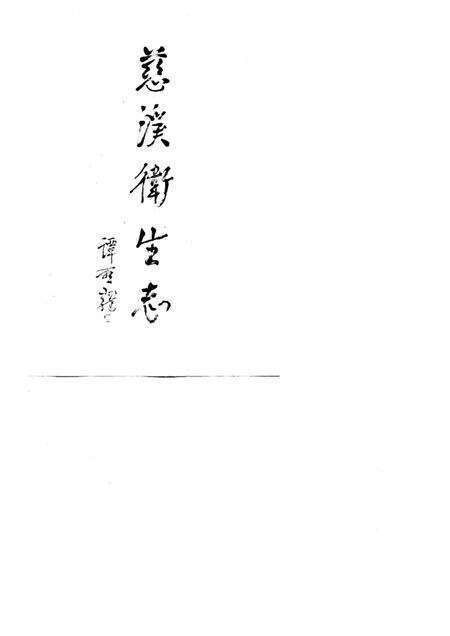 慈溪衛生志
譚